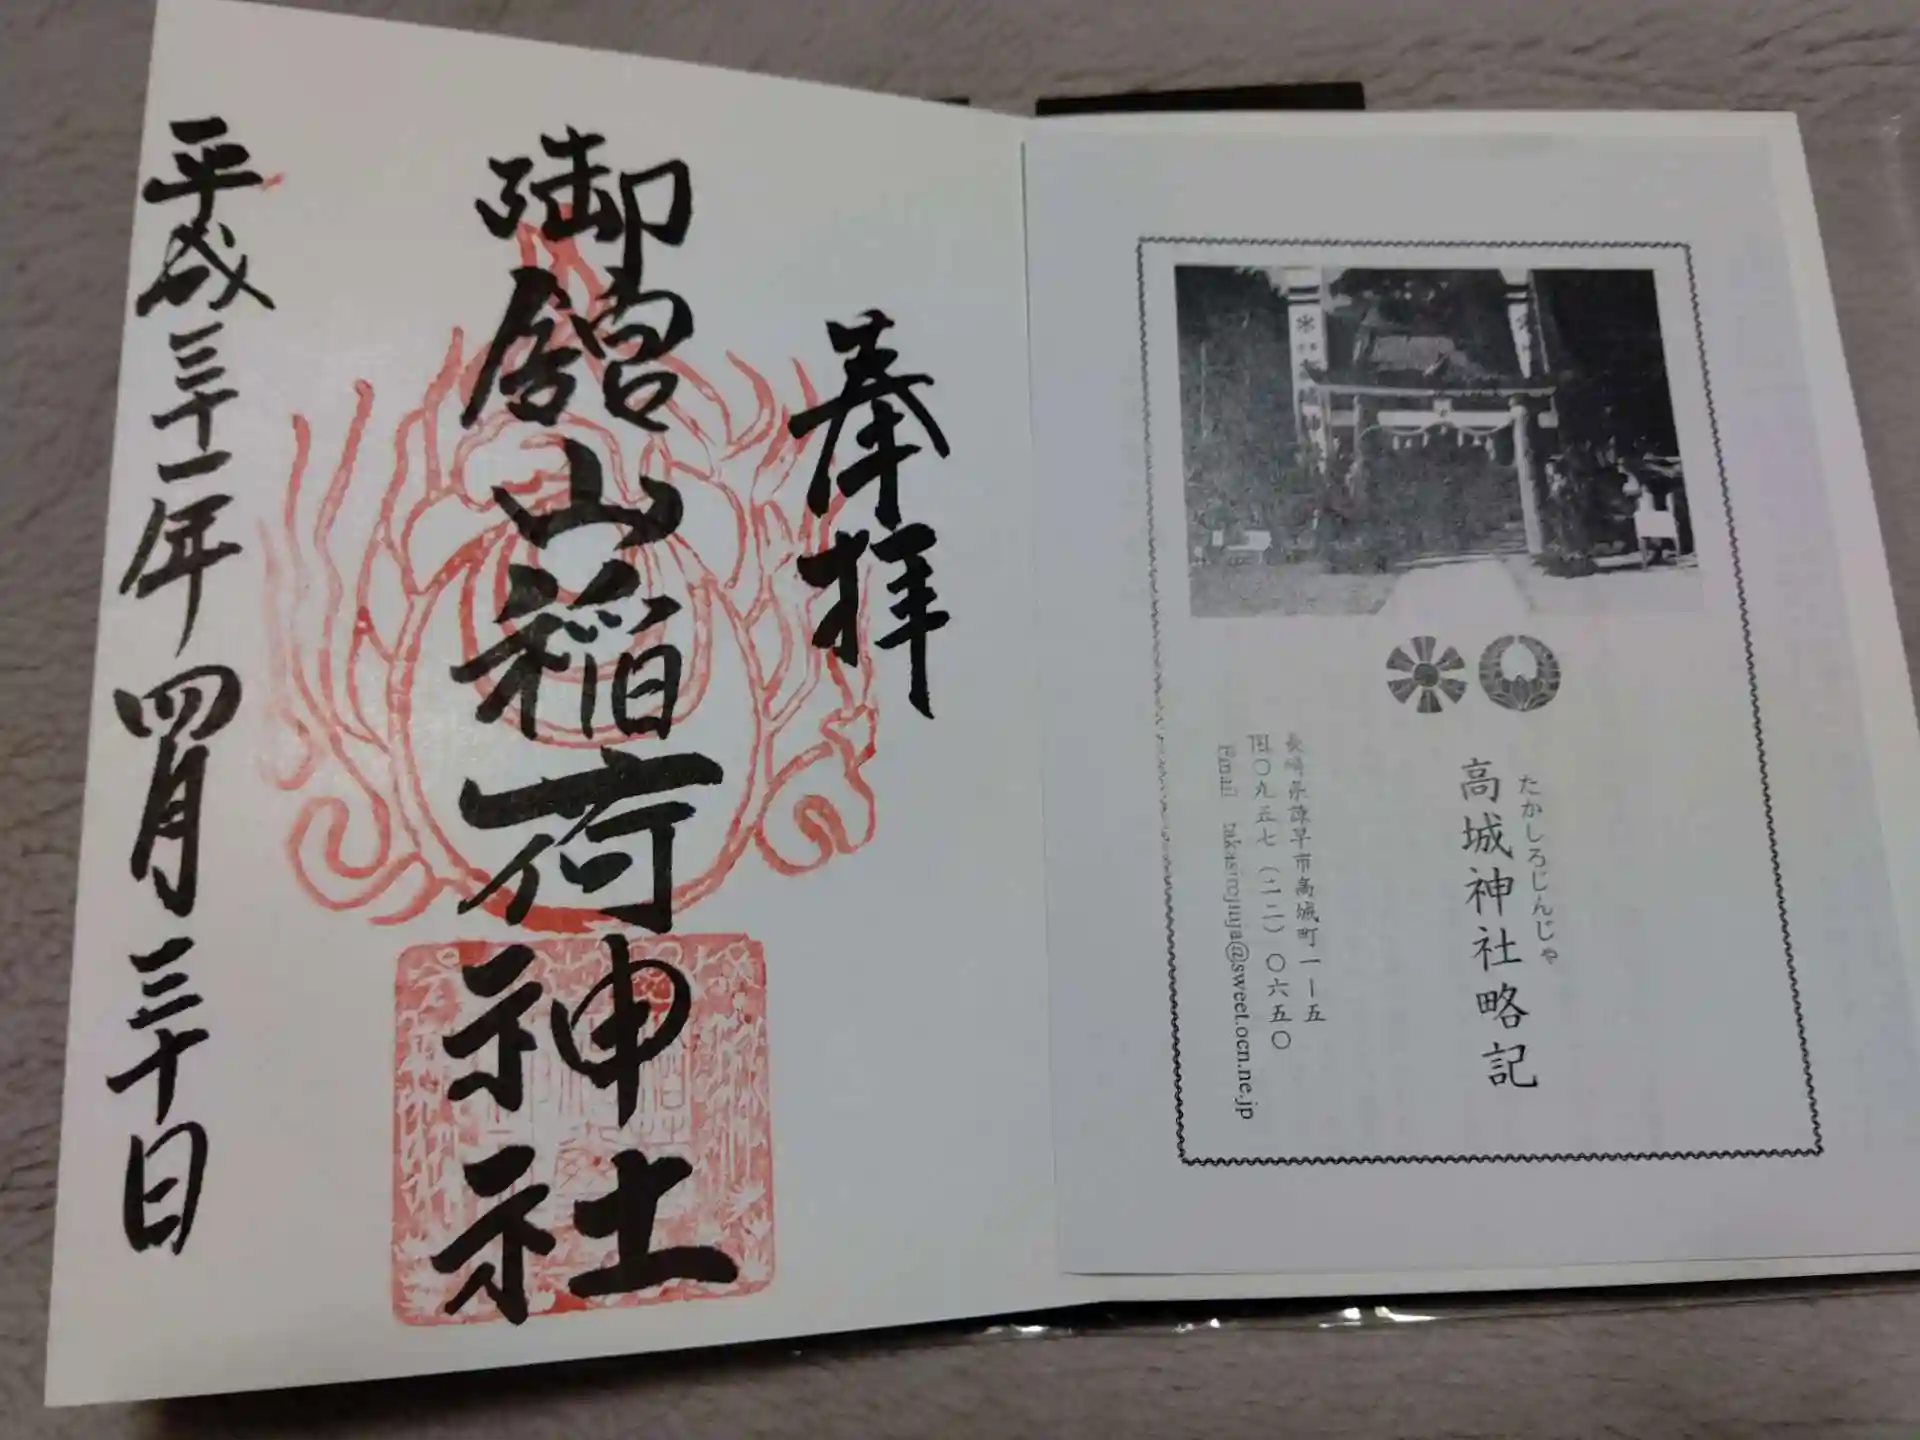 たかしろじんじゃ
高城神社略記
長崎県諫早市高城町一ー五
TEL〇九五七（二二）〇六五〇
Email takasirojinja@sweet.ocn.ne.jp
奉拝
御舘山稲荷神社
平成三十一年四月三十日